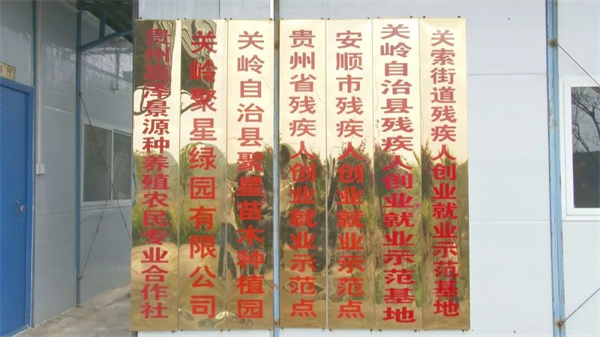 贵州鑫泽景源种养殖农民专业合作社
关岭聚星绿园有限公司
关岭自治县聚星苗木种植园
贵州省残疾人创业就业示范点
安顺市残疾人创业就业示范点
关岭自治县残疾人创业就业示范基地
关索街道残疾人创业就业示范基地